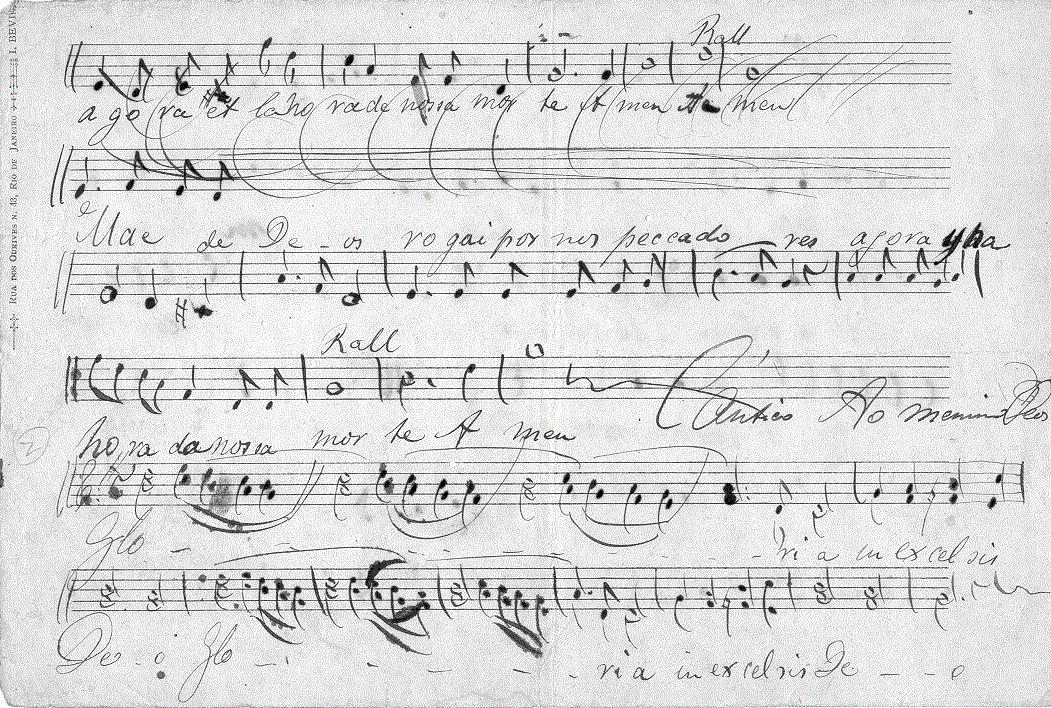 Rall
a go ra et la ho ra de nossa mor te A men A men
Mae de De - os ro gai por nos peccado res agora y ha
Rall
Cantico Ao menino Deos
ho ra da nossa mor te A men
Glo - - - - - - - ri a in excelsis
De - o Glo - - - - - ri a in excelsis De - - - o
RUA DOS OURIVES N. 43, RIO DE JANEIRO